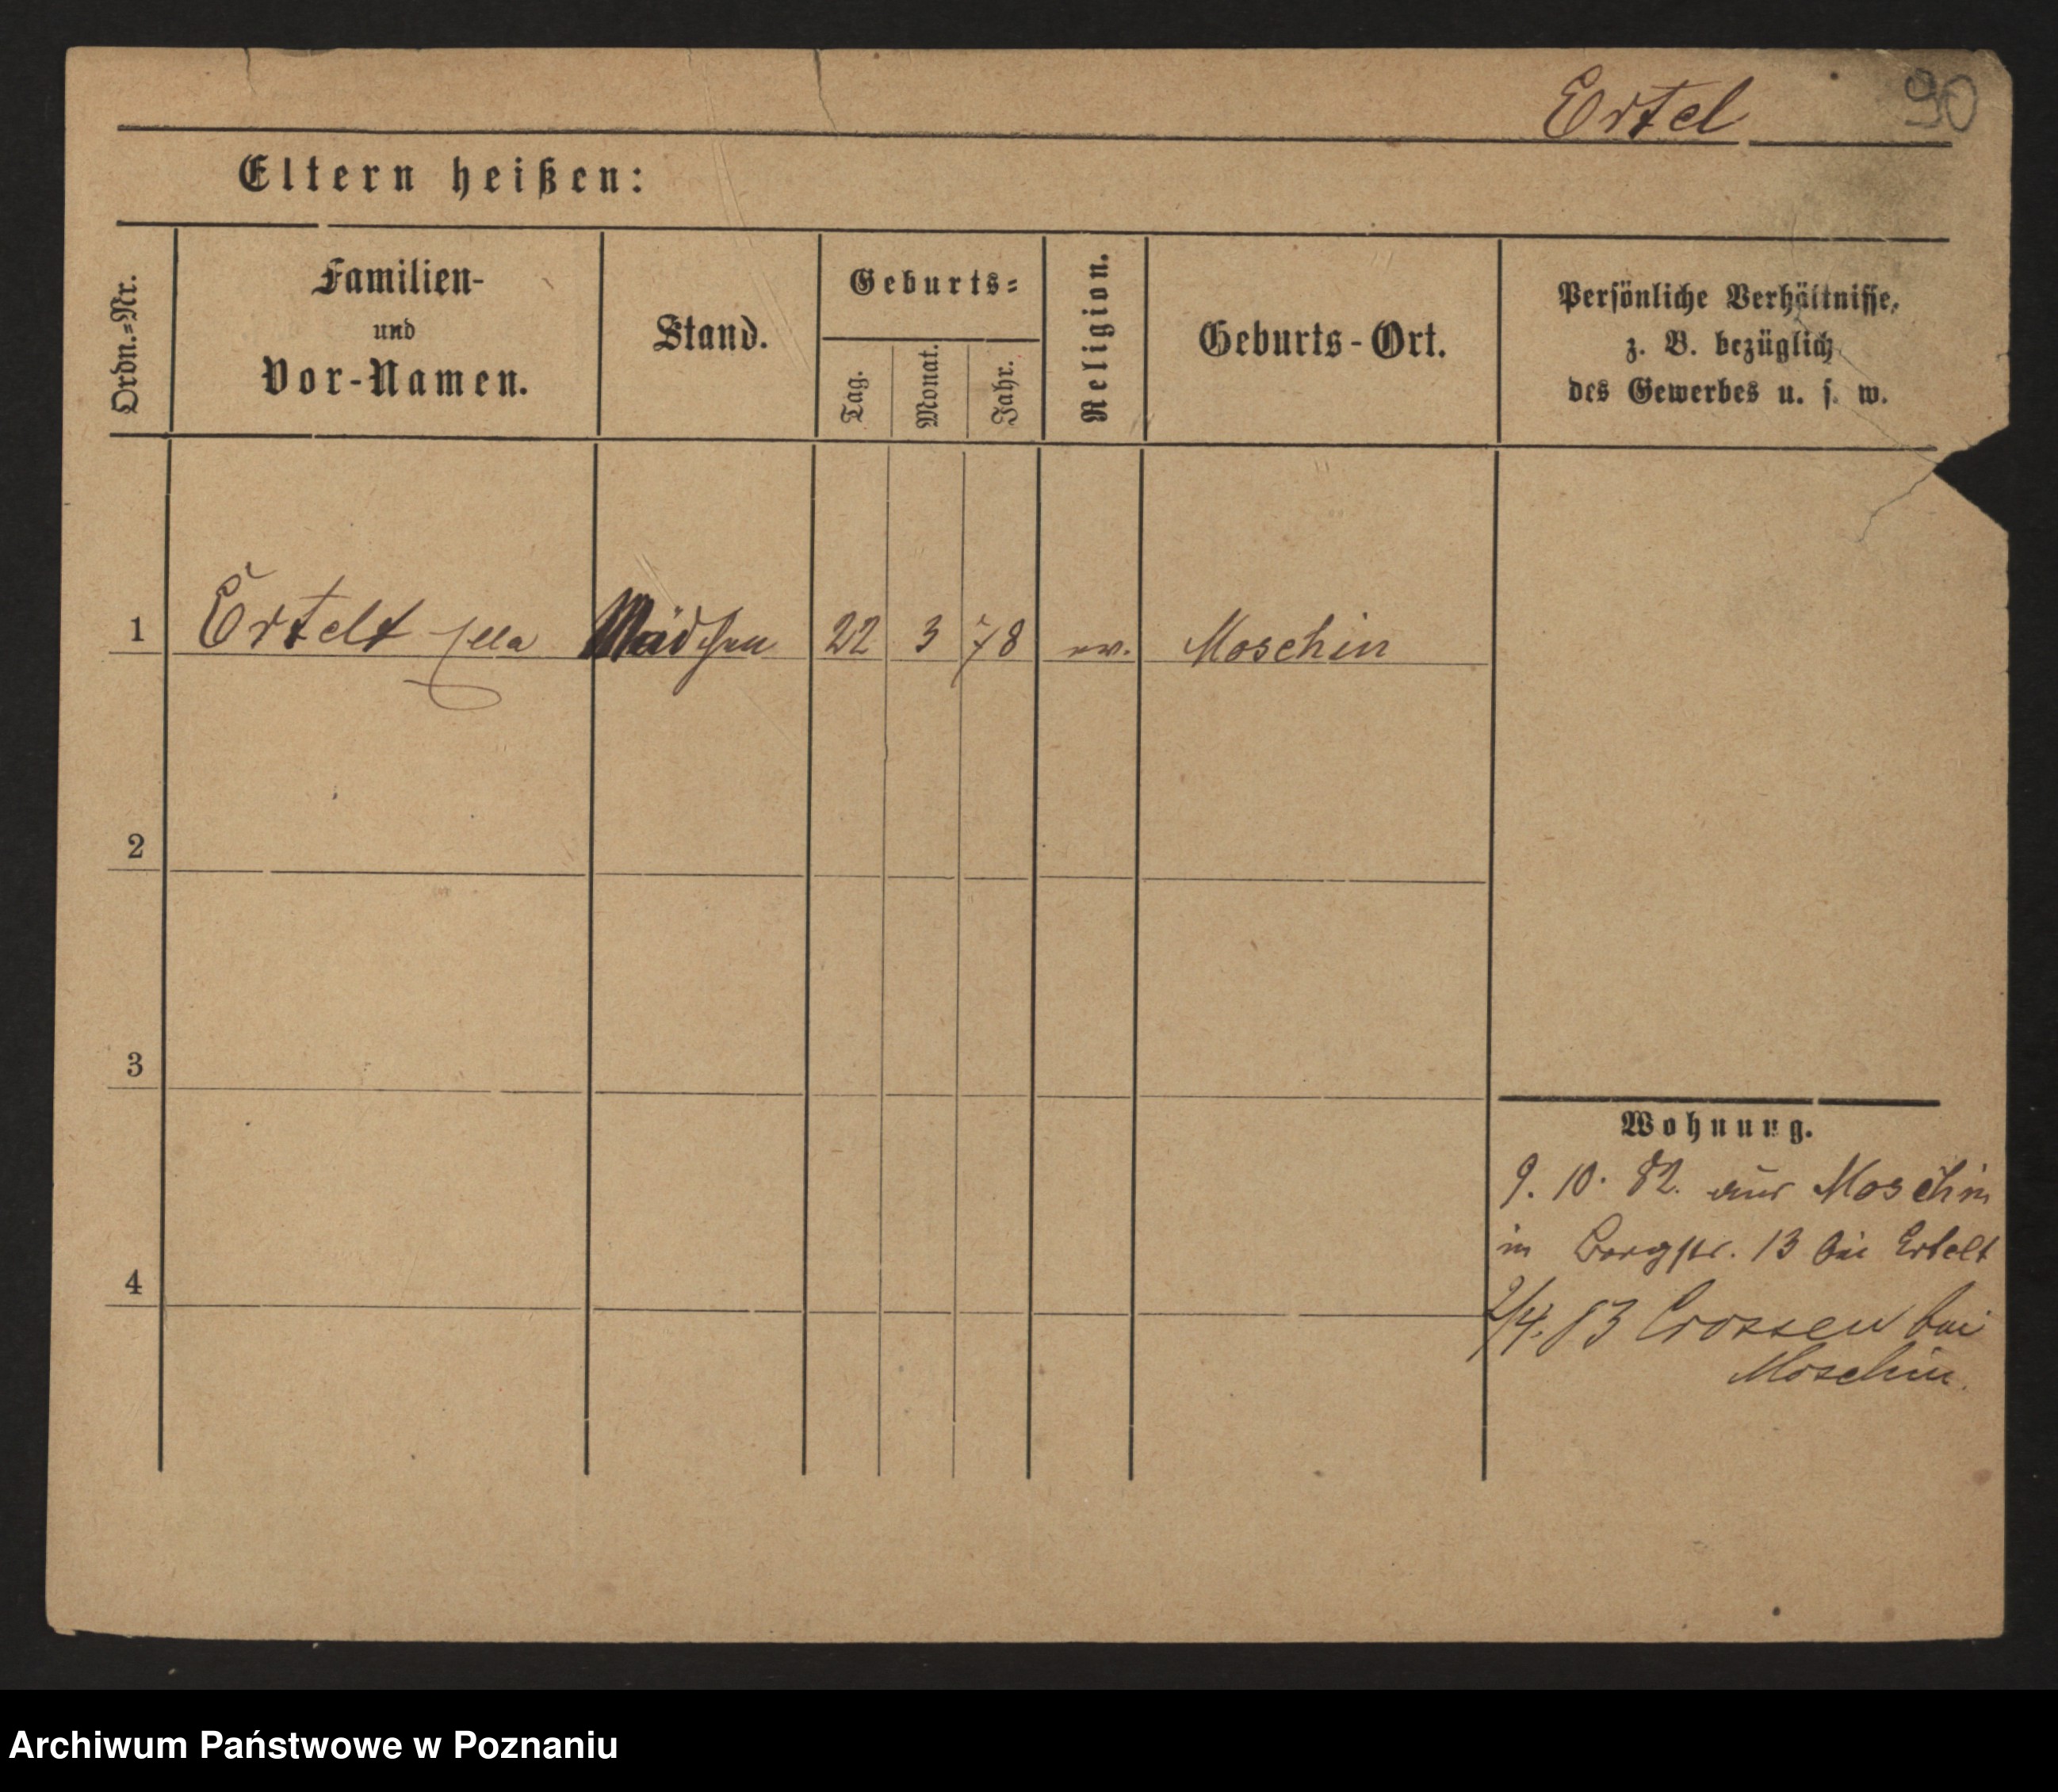 Ertel 90
Eltern heißen:
Ordn.=Nr.
Familien-
und
Vor-Namen.
Stand.
Geburts=
Tag.
Monat.
Jahr.
Religion.
Geburts-Ort.
Persönliche Verhältnisse,
z. B. bezüglich
des Gewerbes u. s. w.
1 Ertelt Ella Mädchen 22 3 78 ev. Moschin
2
3
4
Wohnung.
9. 10. 82. aus Moschin
in Bergstr. 13 bei Ertelt
2/4. 83 Crossen bei
Moschin
Archiwum Państwowe w Poznaniu